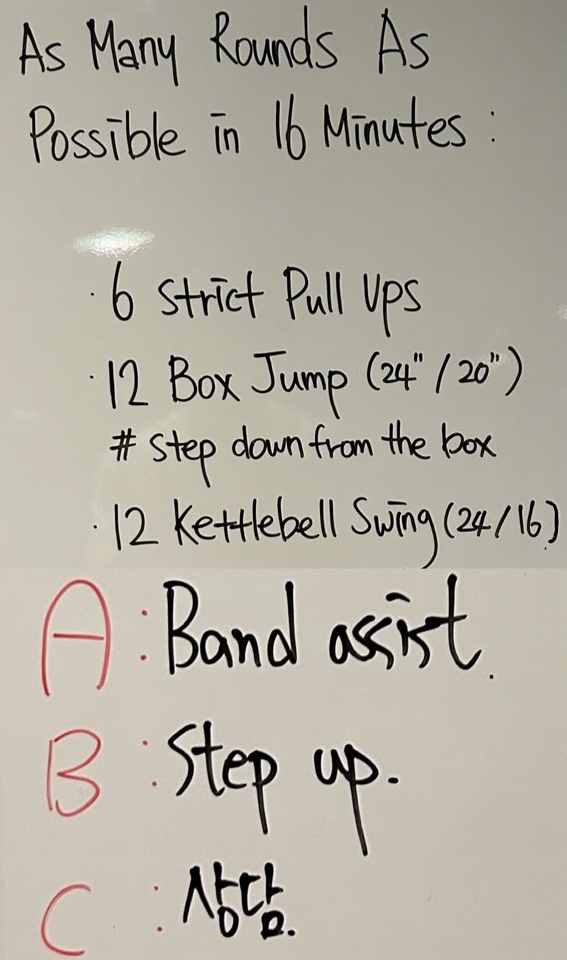 As Many Rounds As
Possible in 16 Minutes :
· 6 Strict Pull Ups
· 12 Box Jump (24" / 20")
# Step down from the box
· 12 Kettlebell Swing (24/16)
A : Band assist.
B : Step up.
C : 상담.